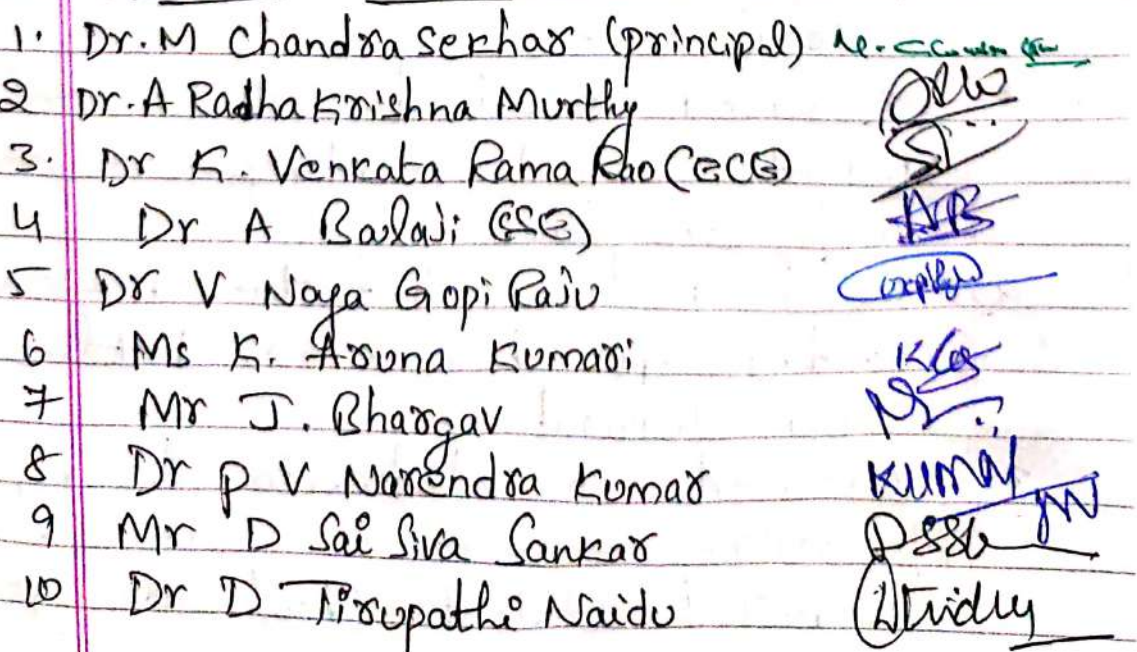 1. Dr. M Chandra Sekhar (principal)
2 Dr. A Radha Krishna Murthy
3. Dr K. Venkata Rama Rao (ECE)
4 Dr A Balaji (CSE)
5 Dr V Naga Gopi Raju
6 Ms K. Aruna Kumari
7 Mr J. Bhargav
8 Dr P V Narendra Kumar KUMAR
9 Mr D Sai Siva Sankar
10 Dr D Tirupathi Naidu